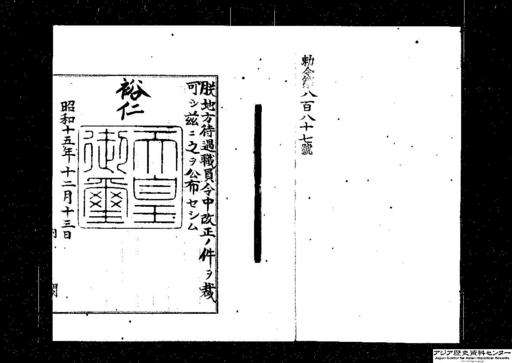 勅令第八百八十七號
朕地方待遇職員令中改正ノ件ヲ裁
可シ玆ニ之ヲ公布セシム
裕仁
天皇御璽
昭和十五年十二月十三日
アジア歴史資料センター
Japan Center for Asian Historical Records